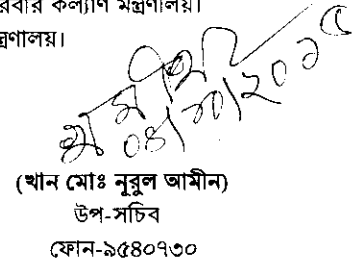 রবার কল্যাণ মন্ত্রণালয়।
ন্ত্রণালয়।
(খান মোঃ নূরুল আমীন)
উপ-সচিব
ফোন-৯৫৪০৭৩০